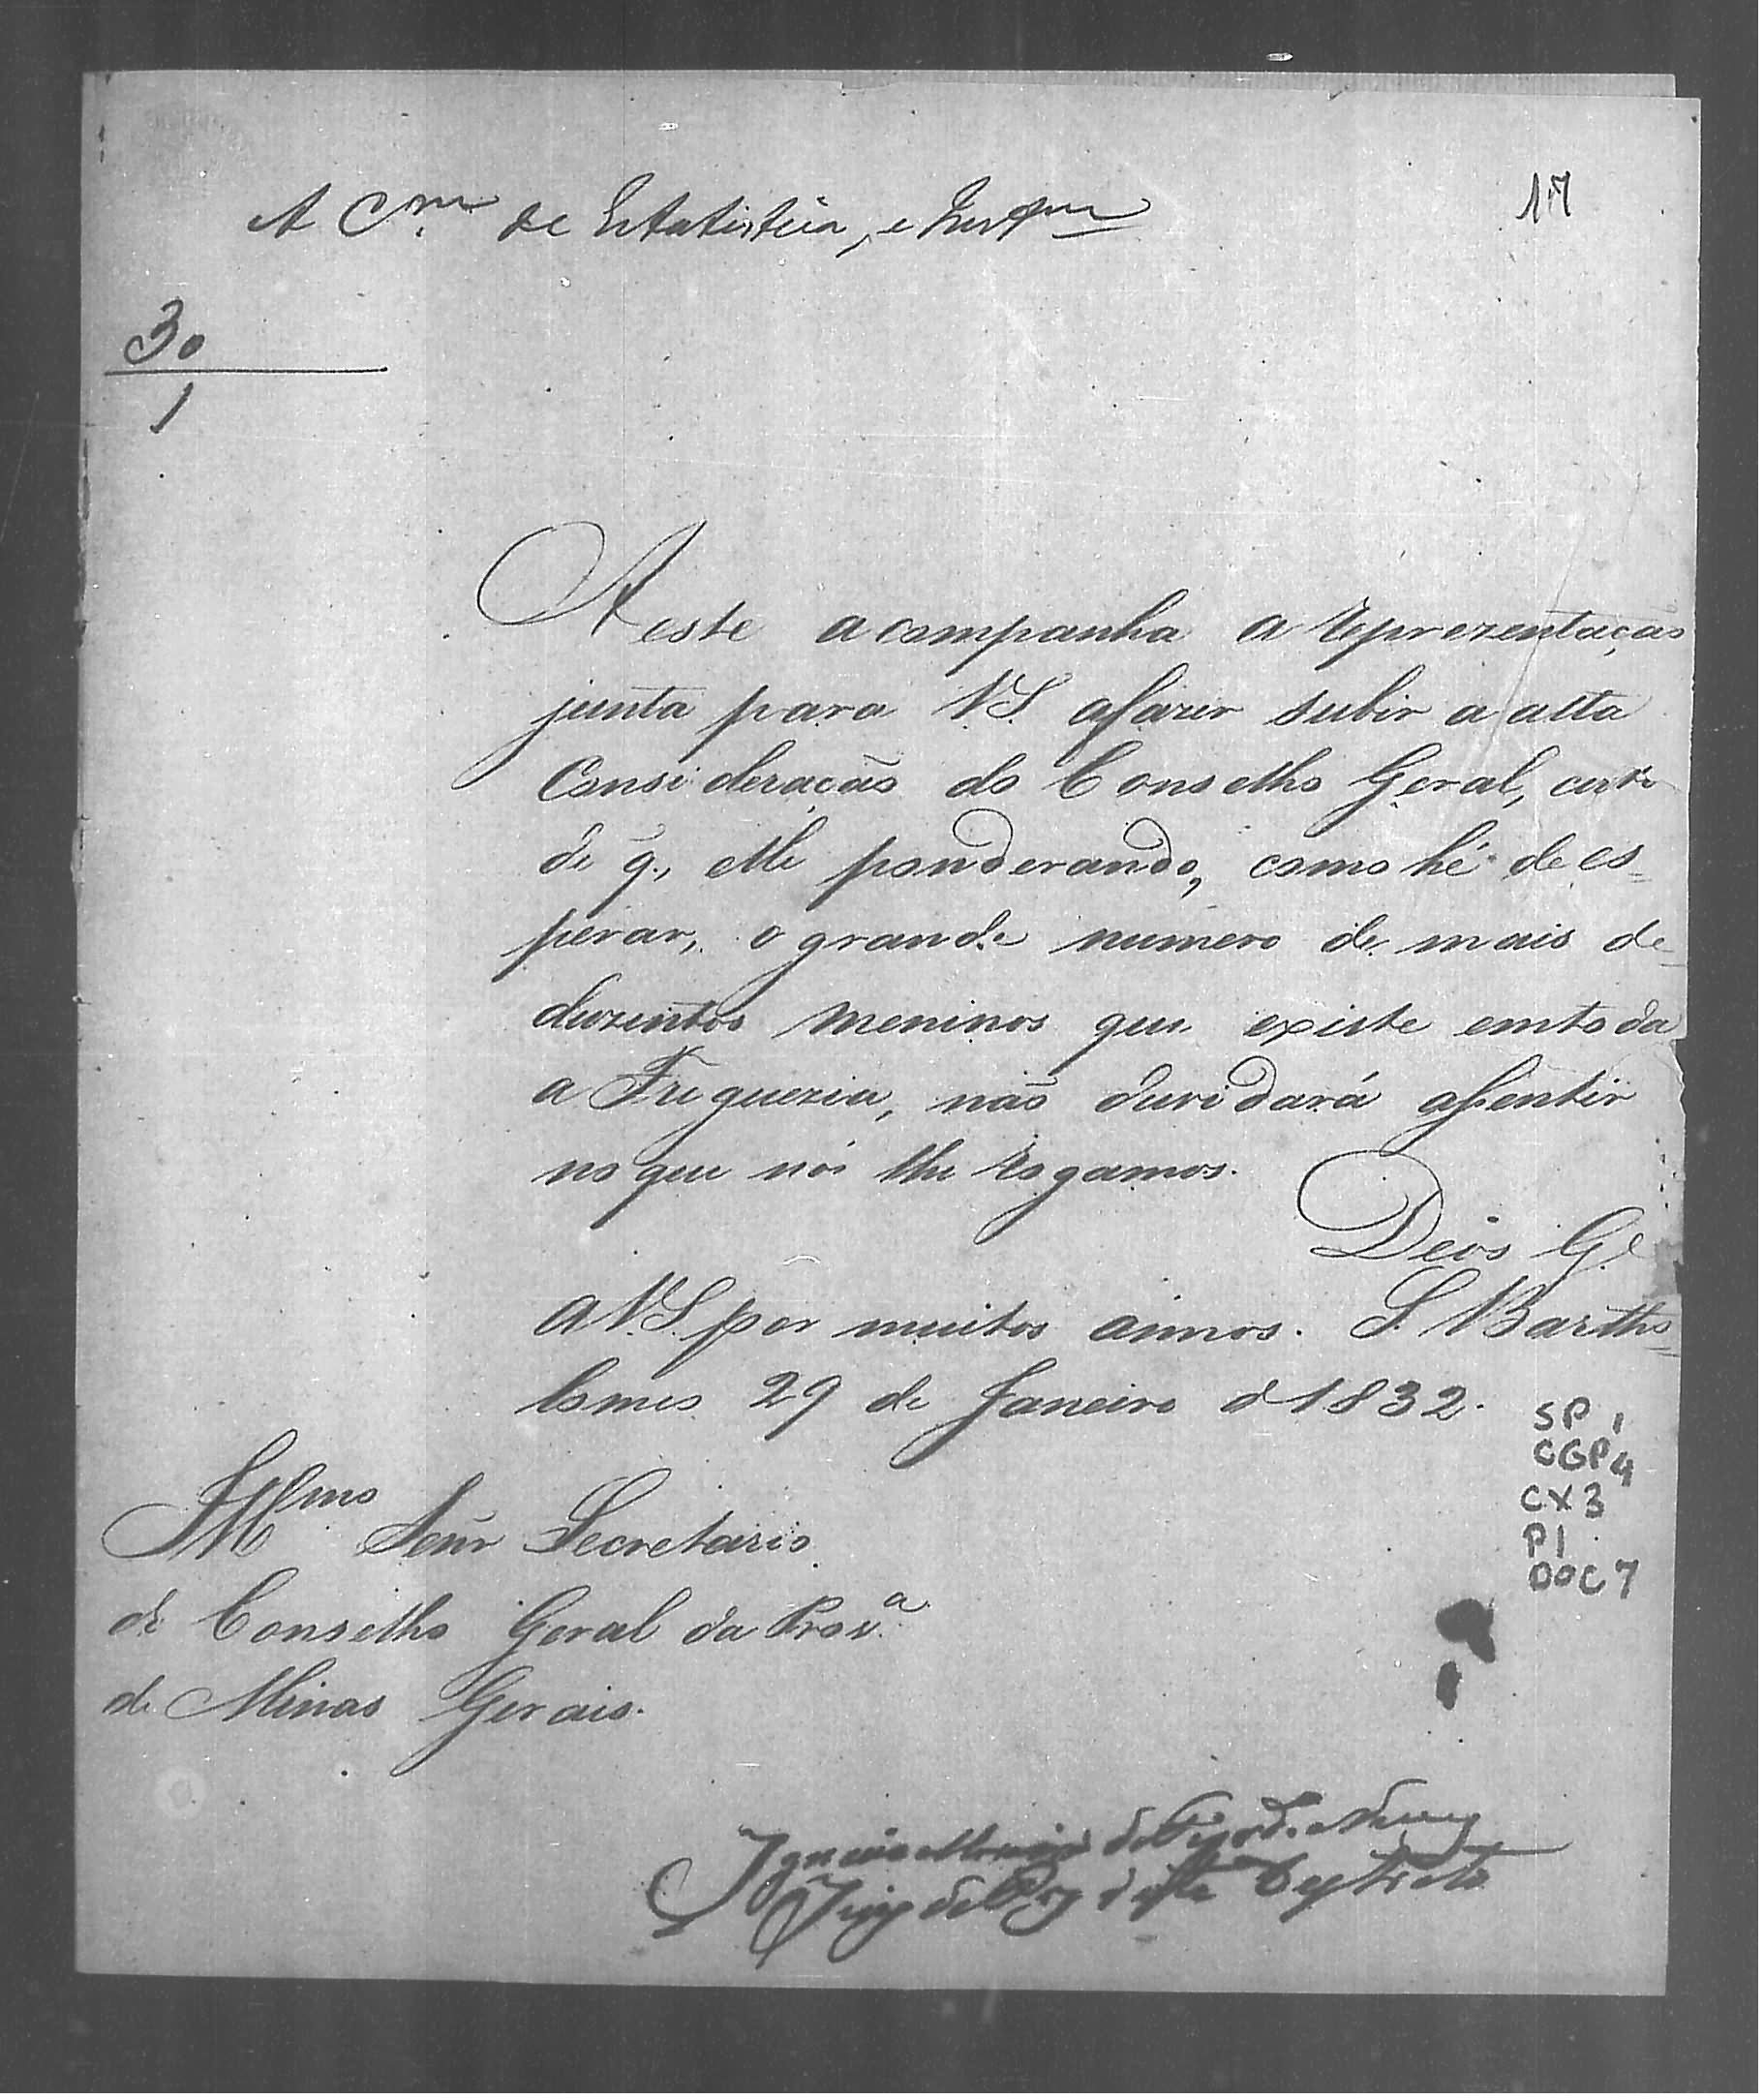 17
A C.m de Estatistica, e
30
1
A este acompanha a reprezentação
junta para V.S. afazer subir a alta
Consideração do Conselho Geral, certo
de q., elle ponderando, como hé de es=
perar, o grande numero de mais de=
duzentos meninos que existe emtoda
a Freguezia, não duvidará assentir
no que nós lhe rogamos.
Deos G.e
a V.S. por muitos annos. S. Bartho=
lomeo 29 de Janeiro d 1832.
Illmo Senr Secretario
do Conselho Geral da Prov.a
de Minas Gerais.
SP 1
CGP 4
CX 3
P1
DOC 7
Ignacio
Juiz de Paz